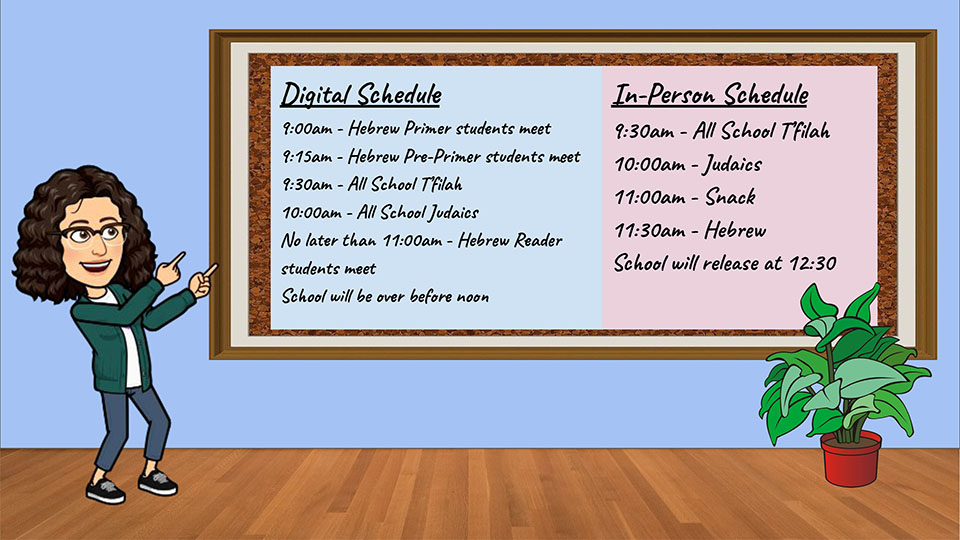 Digital Schedule
9:00am - Hebrew Primer students meet
9:15am - Hebrew Pre-Primer students meet
9:30am - All School T'filah
10:00am - All School Judaics
No later than 11:00am - Hebrew Reader
students meet
School will be over before noon
In-Person Schedule
9:30am - All School T'filah
10:00am - Judaics
11:00am - Snack
11:30am - Hebrew
School will release at 12:30